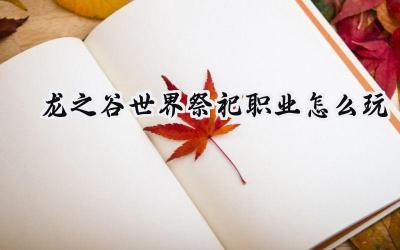 龙之谷世界祭祀职业怎么玩